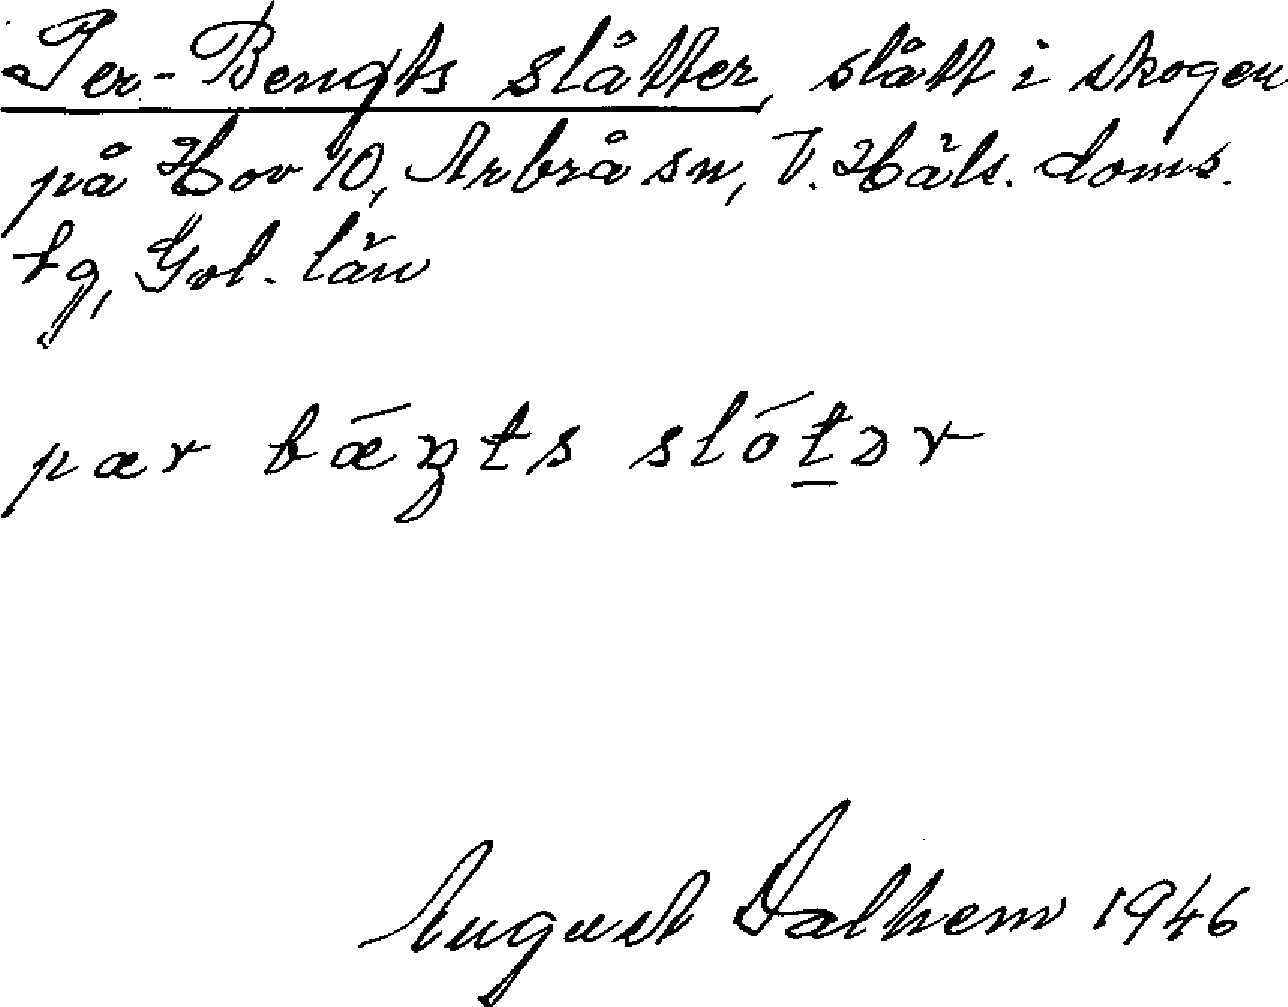 Per-Bengts slåtter, slått i skogen
på Hov 10, Arbrå sn, V. Häls. doms.
tg, Gvl. län
pær bǽŋts slót̲ər
August Dalhem 1946